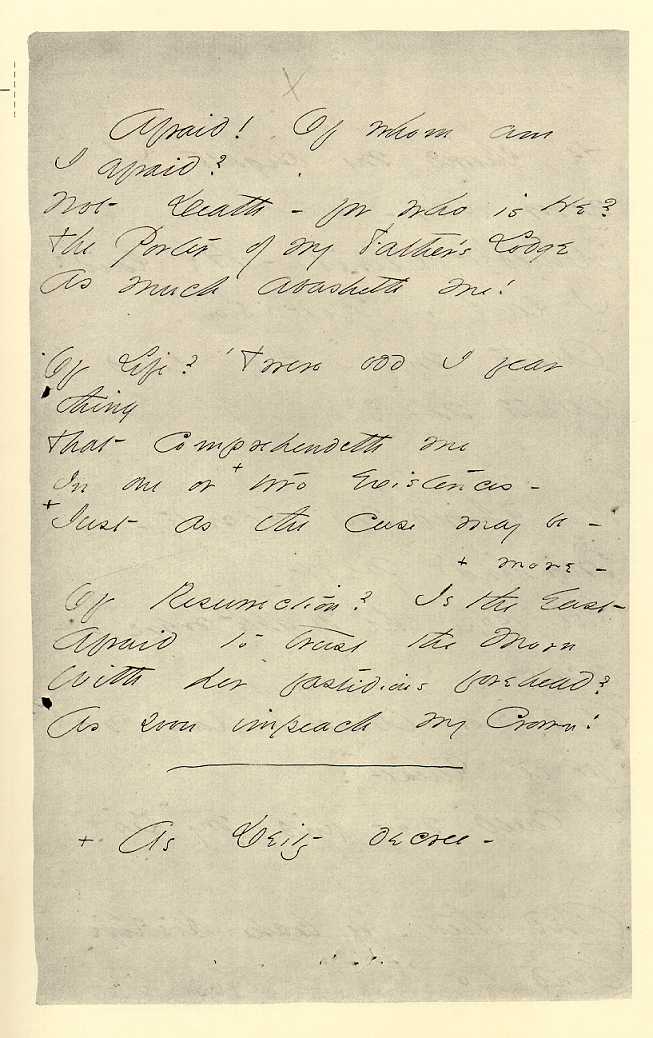 Afraid! Of whom am
I afraid?
Not Death – for who is He?
The Porter of my Father's Lodge
As much abasheth me!
Of Life? 'Twere odd I fear
thing
That comprehendeth me
In one or +two Existences –
+Just as the case may be –
+ more –
Of Resurrection? Is the East
Afraid to trust the Morn
With her fastidious forehead?
As soon impeach my Crown!
+ As Deity decree –